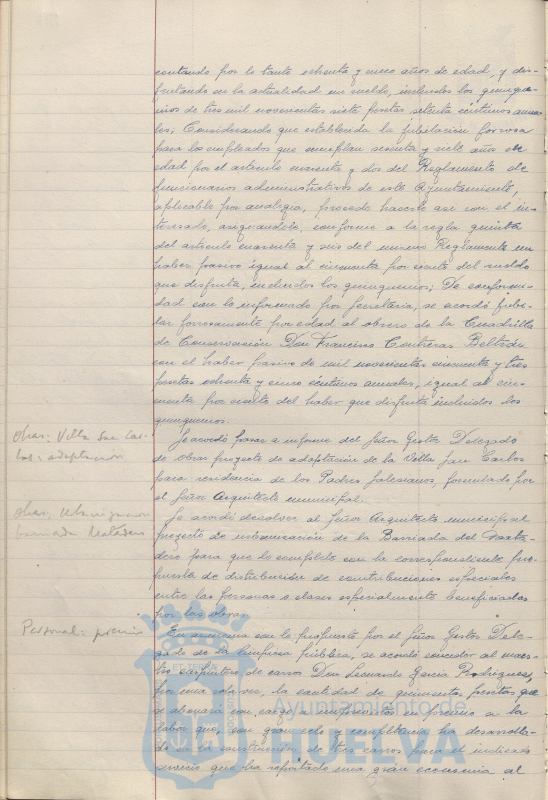 contando por lo tanto ochenta y cinco años de edad, y dis-
frutando en la actualidad un sueldo, incluidos los quinque-
nios de tres mil novecientas siete pesetas setenta céntimos anua-
les; Considerando que establecida la jubilación forzosa
para los empleados que cumplan sesenta y siete años de
edad por el artículo cuarenta y dos del Reglamento de
funcionarios administrativos de este Ayuntamiento,
aplicable por analogía, procede hacerlo así con el in-
teresado, asignandole, conforme a la regla quinta
del artículo cuarenta y seis del mismo Reglamento un
haber pasivo igual al cincuenta por ciento del sueldo
que disfruta, incluidos los quinquenios; De conformi-
dad con lo informado por Secretaria, se acordó jubi-
lar forzosamente por edad al obrero de la Cuadrilla
de Conservación Don Francisco Contreras Beltrán
con el haber pasivo de mil novecientas cincuenta y tres
pesetas ochenta y cinco céntimos anuales, igual al cin-
cuenta por ciento del haber que disfruta incluidos los
quinquenios.
Obras: Villa San Car-
los: adaptación
Se acordó pasar a informe del Señor Gestor Delegado
de obras proyecto de adaptación de la Villa San Carlos
para residencia de los Padres Salesianos, formulado por
el Señor Arquitecto municipal.
Obras: Urbanización
barriada Matadero
Se acordó devolver al Señor Arquitecto municipal
proyecto de urbanización de la Barriada del Mata-
dero para que lo complete con la correspondiente pro-
puesta de distribución de contribuciones especiales
entre las personas o clases especialmente beneficiadas
por las obras.
Personal: premio
En armonía con lo propuesto por el Señor Gestor Dele-
gado de la limpieza pública, se acordó conceder al maes-
tro carpintero de carros Don Leonardo Garcia Rodriguez,
por una sola vez, la cantidad de quinientas pesetas que
se abonará con cargo a imprevistos en premio a la
labor que, con gran celo y competencia ha desarrolla-
do en la construcción de tres carros para el indicado
servicio que ha reportado una gran economia al
Ayuntamiento de
HUELVA